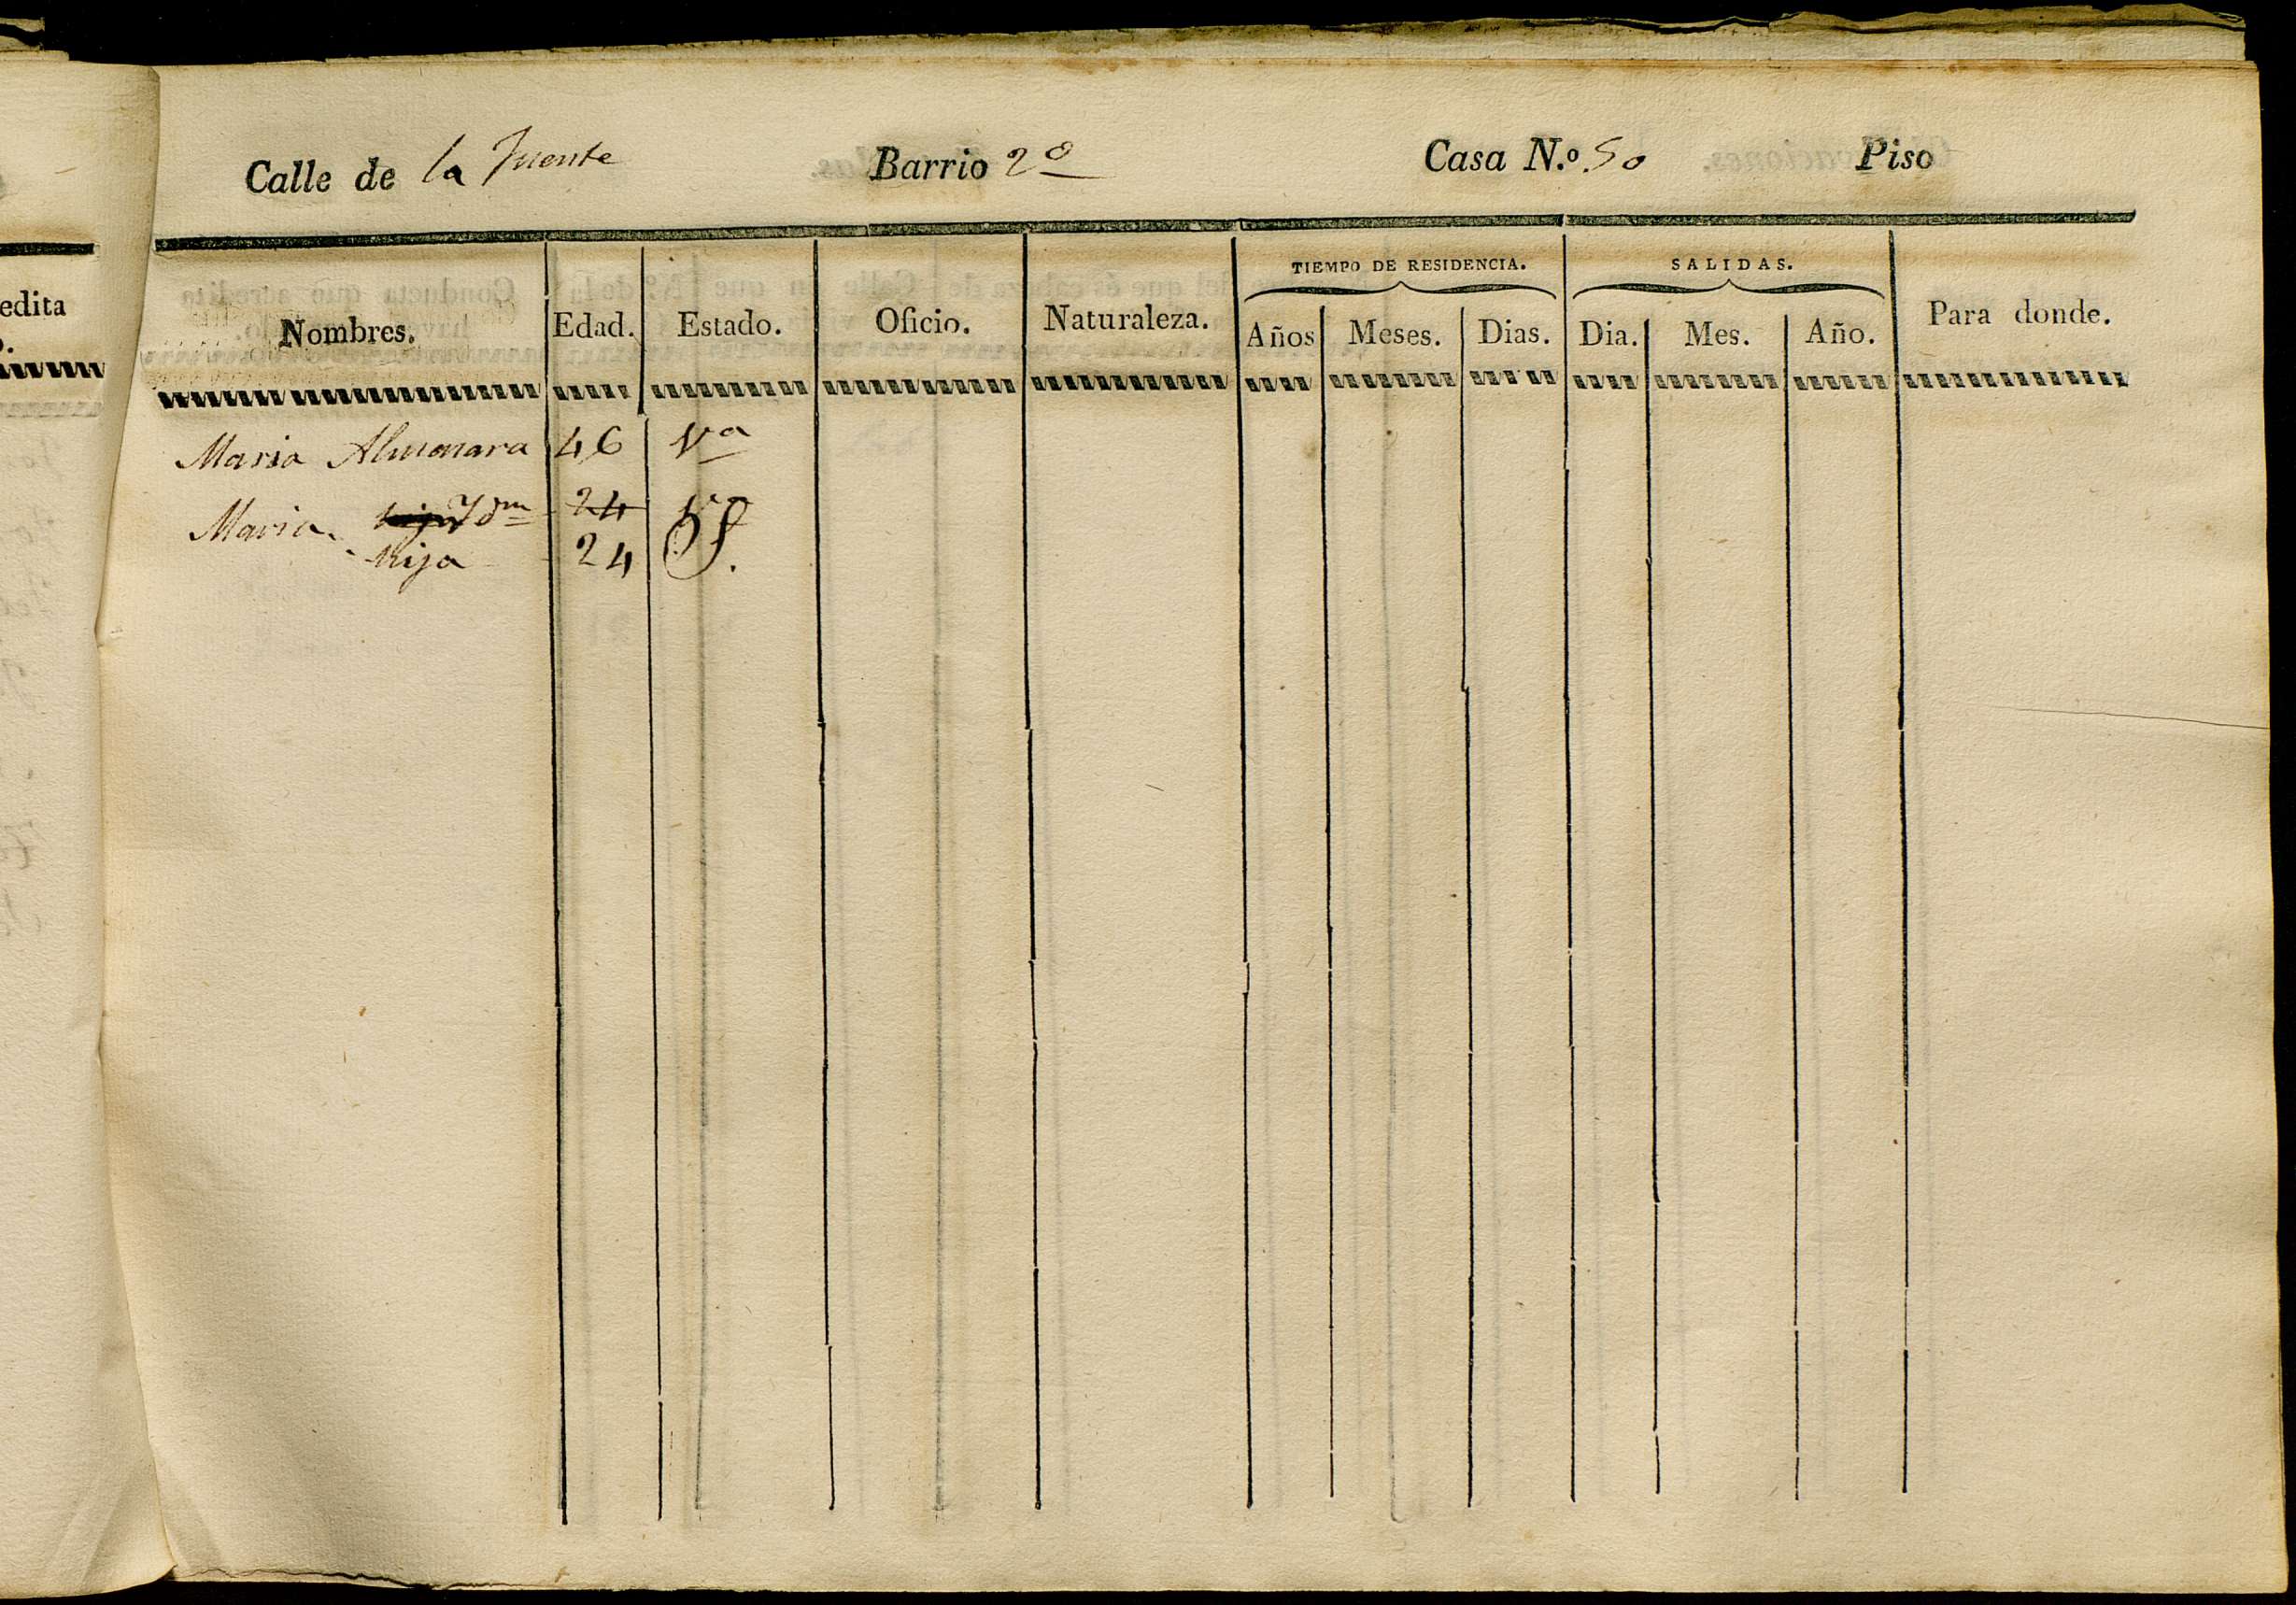 edita
o.
Calle de la Fuente Barrio 2º Casa N.º 50 Piso
TIEMPO DE RESIDENCIA. SALIDAS.
Nombres. Edad. Estado. Oficio. Naturaleza. Años Meses. Dias. Dia. Mes. Año. Para donde.
Maria Almonara 46 Vª
Maria hija Ydm 24
hija 24 S.